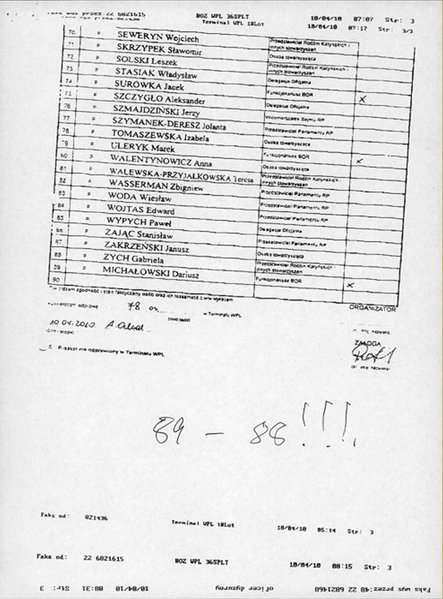 Faks wys przez 22 6821615 BOZ WPL 36SPLT 10/04/10 07:07 Str: 3
Terminal WPL 10Lot 10/04/10 07:17 Str: 3/3
70. P SEWERYN Wojciech Przedstawiciel Rodzin Katyńskich i innych stowarzyszeń
71. P SKRZYPEK Sławomir
72. P SOLSKI Leszek Osoba towarzysząca
73. P STASIAK Władysław Przedstawiciel Rodzin Katyńskich i innych stowarzyszeń
74. P SURÓWKA Jacek Delegacja Oficjalna
75. P SZCZYGŁO Aleksander Funkcjonariusz BOR X
76. P SZMAJDZIŃSKI Jerzy Delegacja Oficjalna
77. P SZYMANEK-DERESZ Jolanta Wicemarszałek Sejmu RP
78. P TOMASZEWSKA Izabela Przedstawiciel Parlamentu RP
79. P ULERYK Marek Osoba towarzysząca
80. P WALENTYNOWICZ Anna Funkcjonariusz BOR X
81. P WALEWSKA-PRZYJALKOWSKA Teresa Przedstawiciel Rodzin Katyńskich i innych stowarzyszeń
82. P WASSERMAN Zbigniew
83. P WODA Wiesław Przedstawiciel Parlamentu RP
84. P WOJTAS Edward Przedstawiciel Parlamentu RP
85. P WYPYCH Paweł Przedstawiciel Parlamentu RP
86. P ZAJĄC Stanisław Delegacja Oficjalna
87. P ZAKRZEŃSKI Janusz Przedstawiciel Parlamentu RP
88. P ZYCH Gabriela Osoba towarzysząca
89. P MICHAŁOWSKI Dariusz Przedstawiciel Rodzin Katyńskich i innych stowarzyszeń
90. Funkcjonariusz BOR X
zgodność i stan faktyczny osób oraz ich tożsamość z w/w wykazem
78 ORGANIZATOR
w Terminalu WPL
10.04.2010
ZAŁOGA
X w Terminalu WPL
89 - 88!!!
Faks od: 821436 Terminal WPL 10Lot 10/04/10 05:14 Str: 3
Faks od: 22 6821615 BOZ WPL 36SPLT 10/04/10 08:15 Str: 3
Faks wys przez:48 22 6821468 oficer dyzurny 10/04/10 08:31 Str: 3